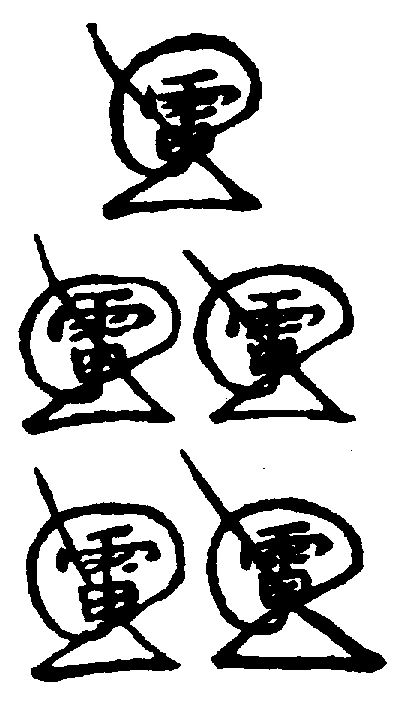 雷
雷 雷
雷 雷